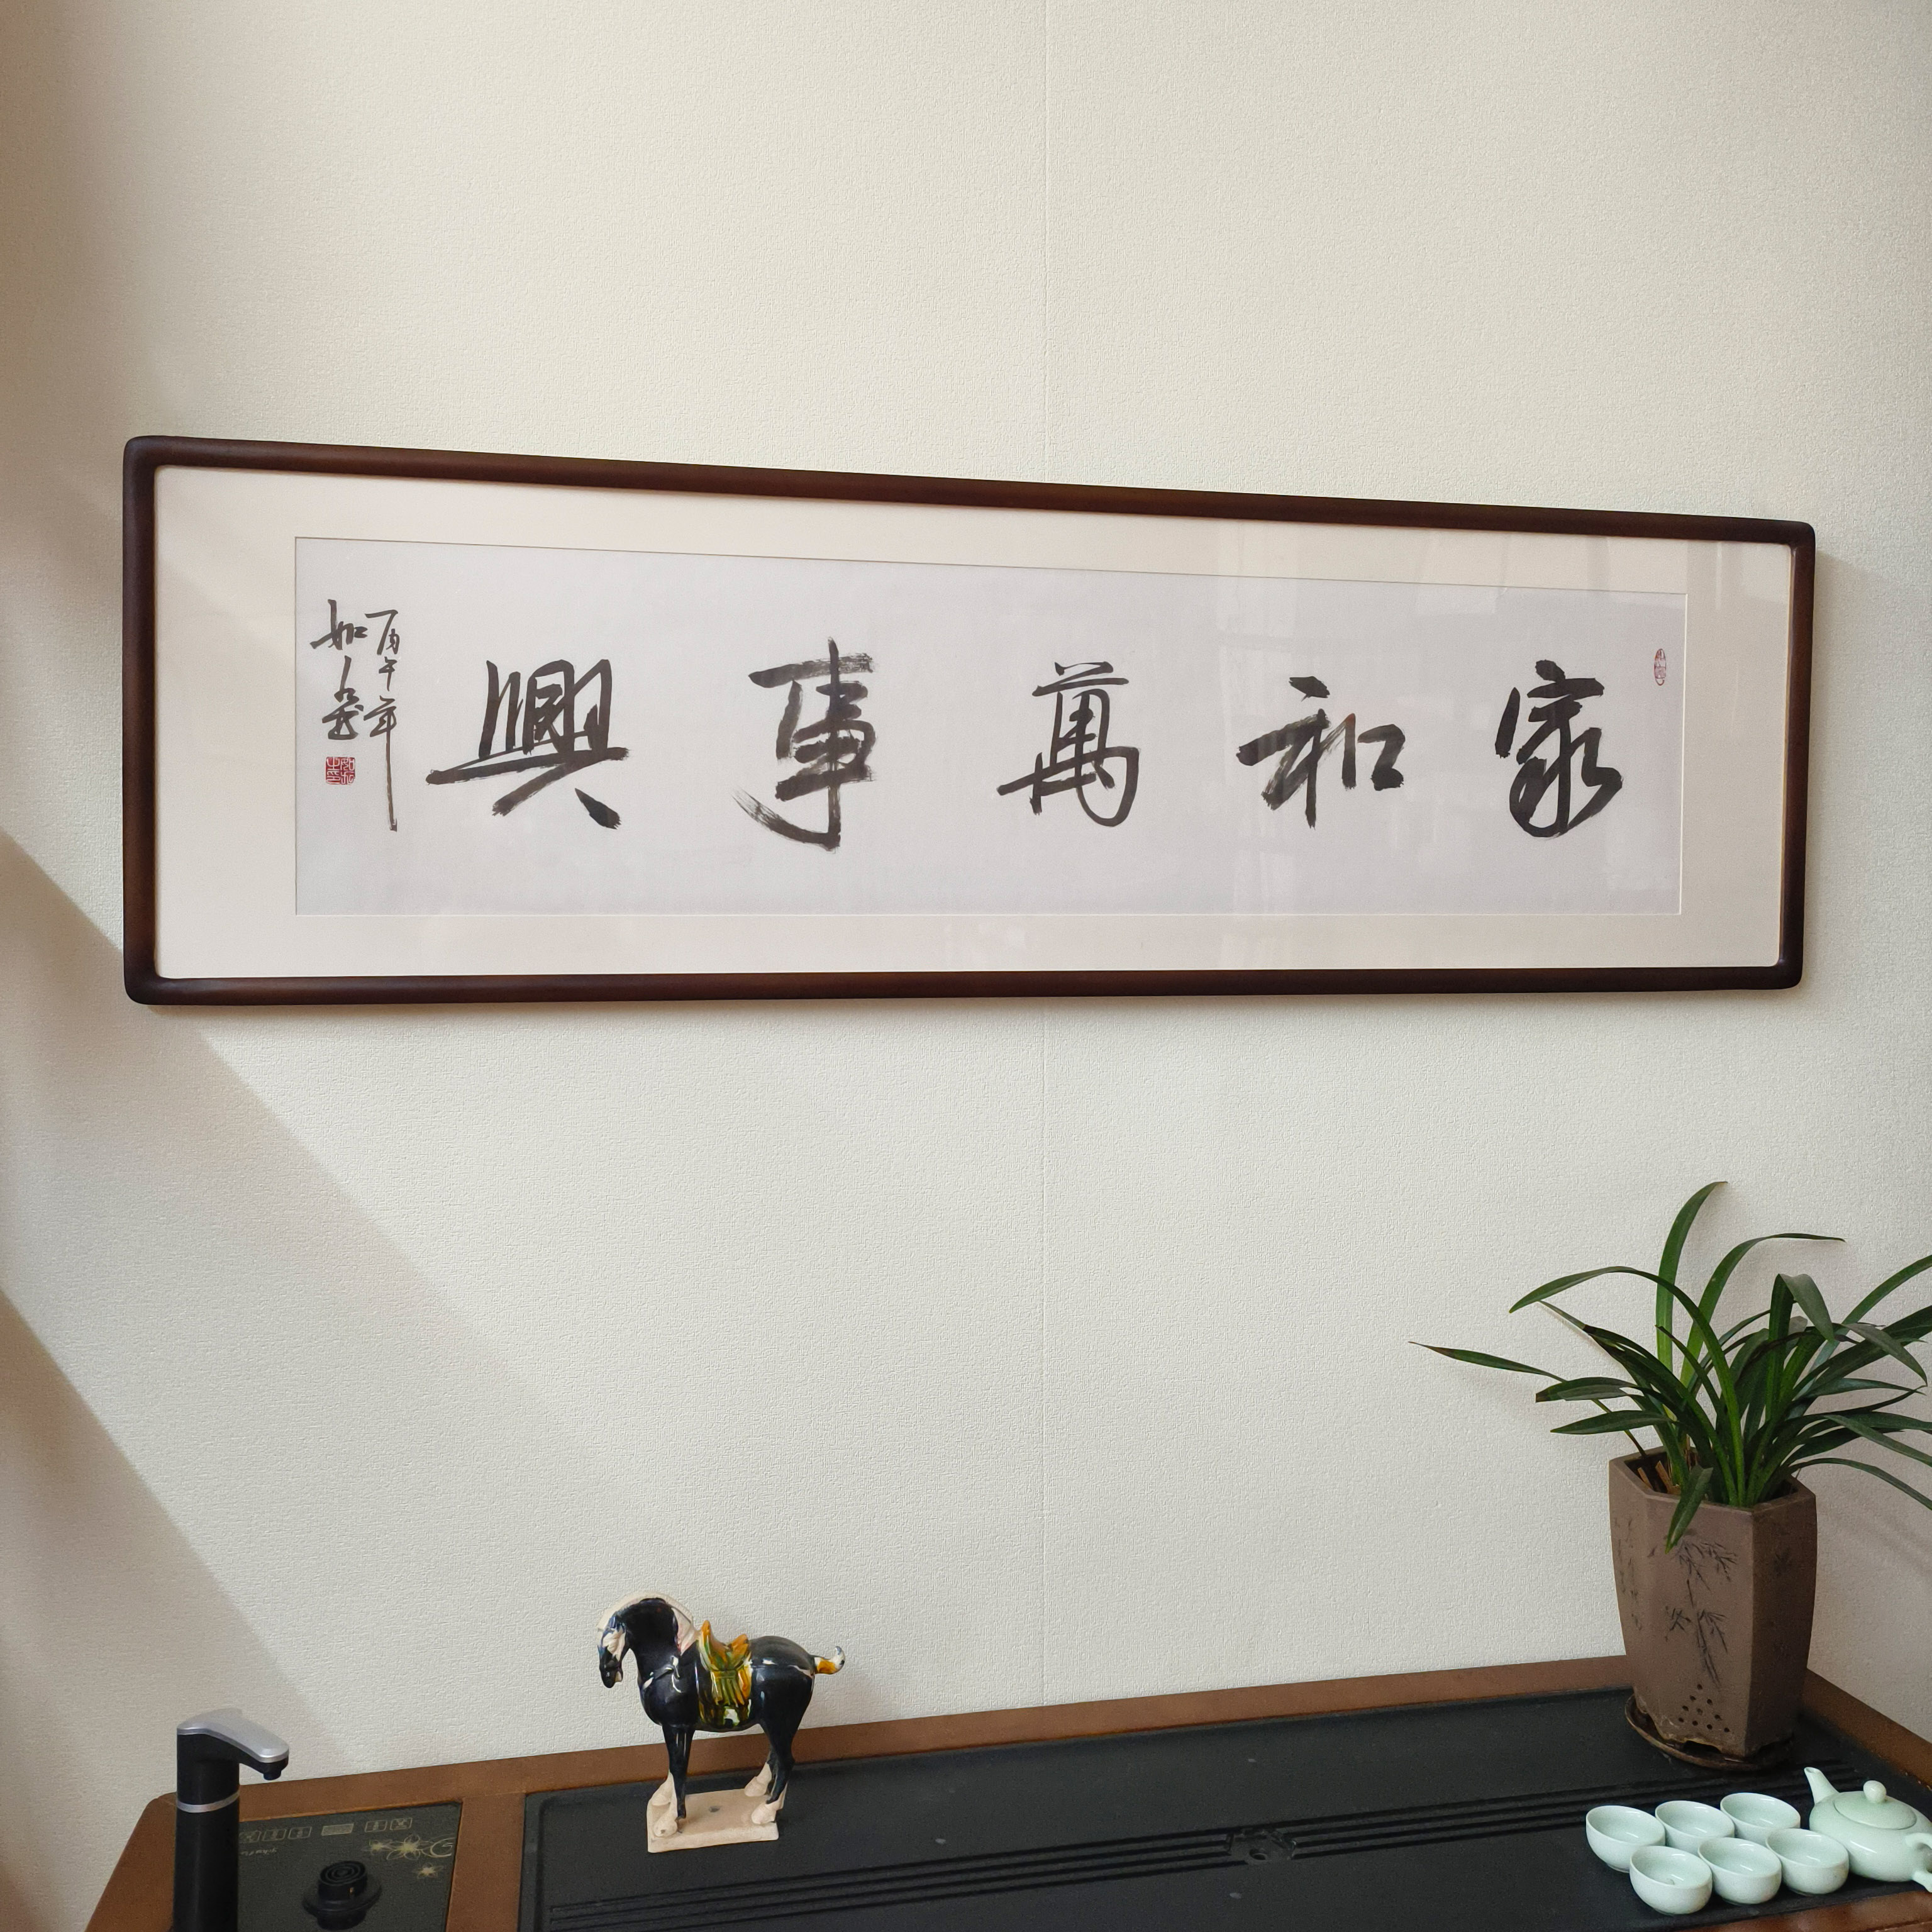 家和萬事興
丙午年